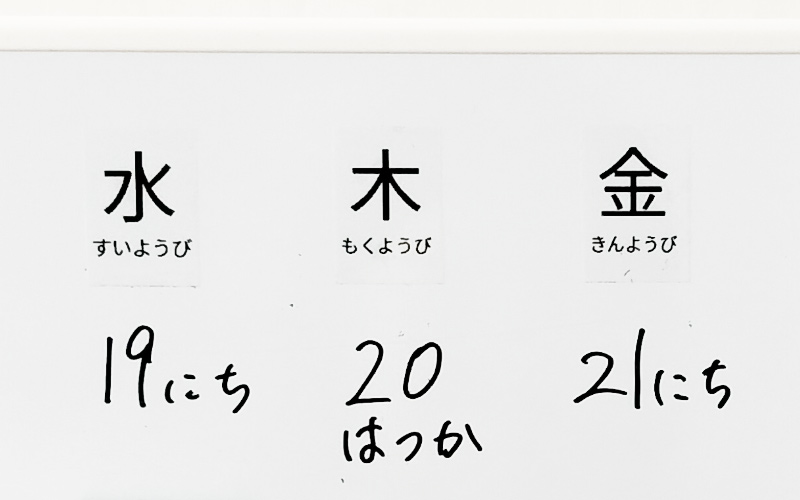 水 木 金
すいようび もくようび きんようび
19にち 20 21にち
はつか